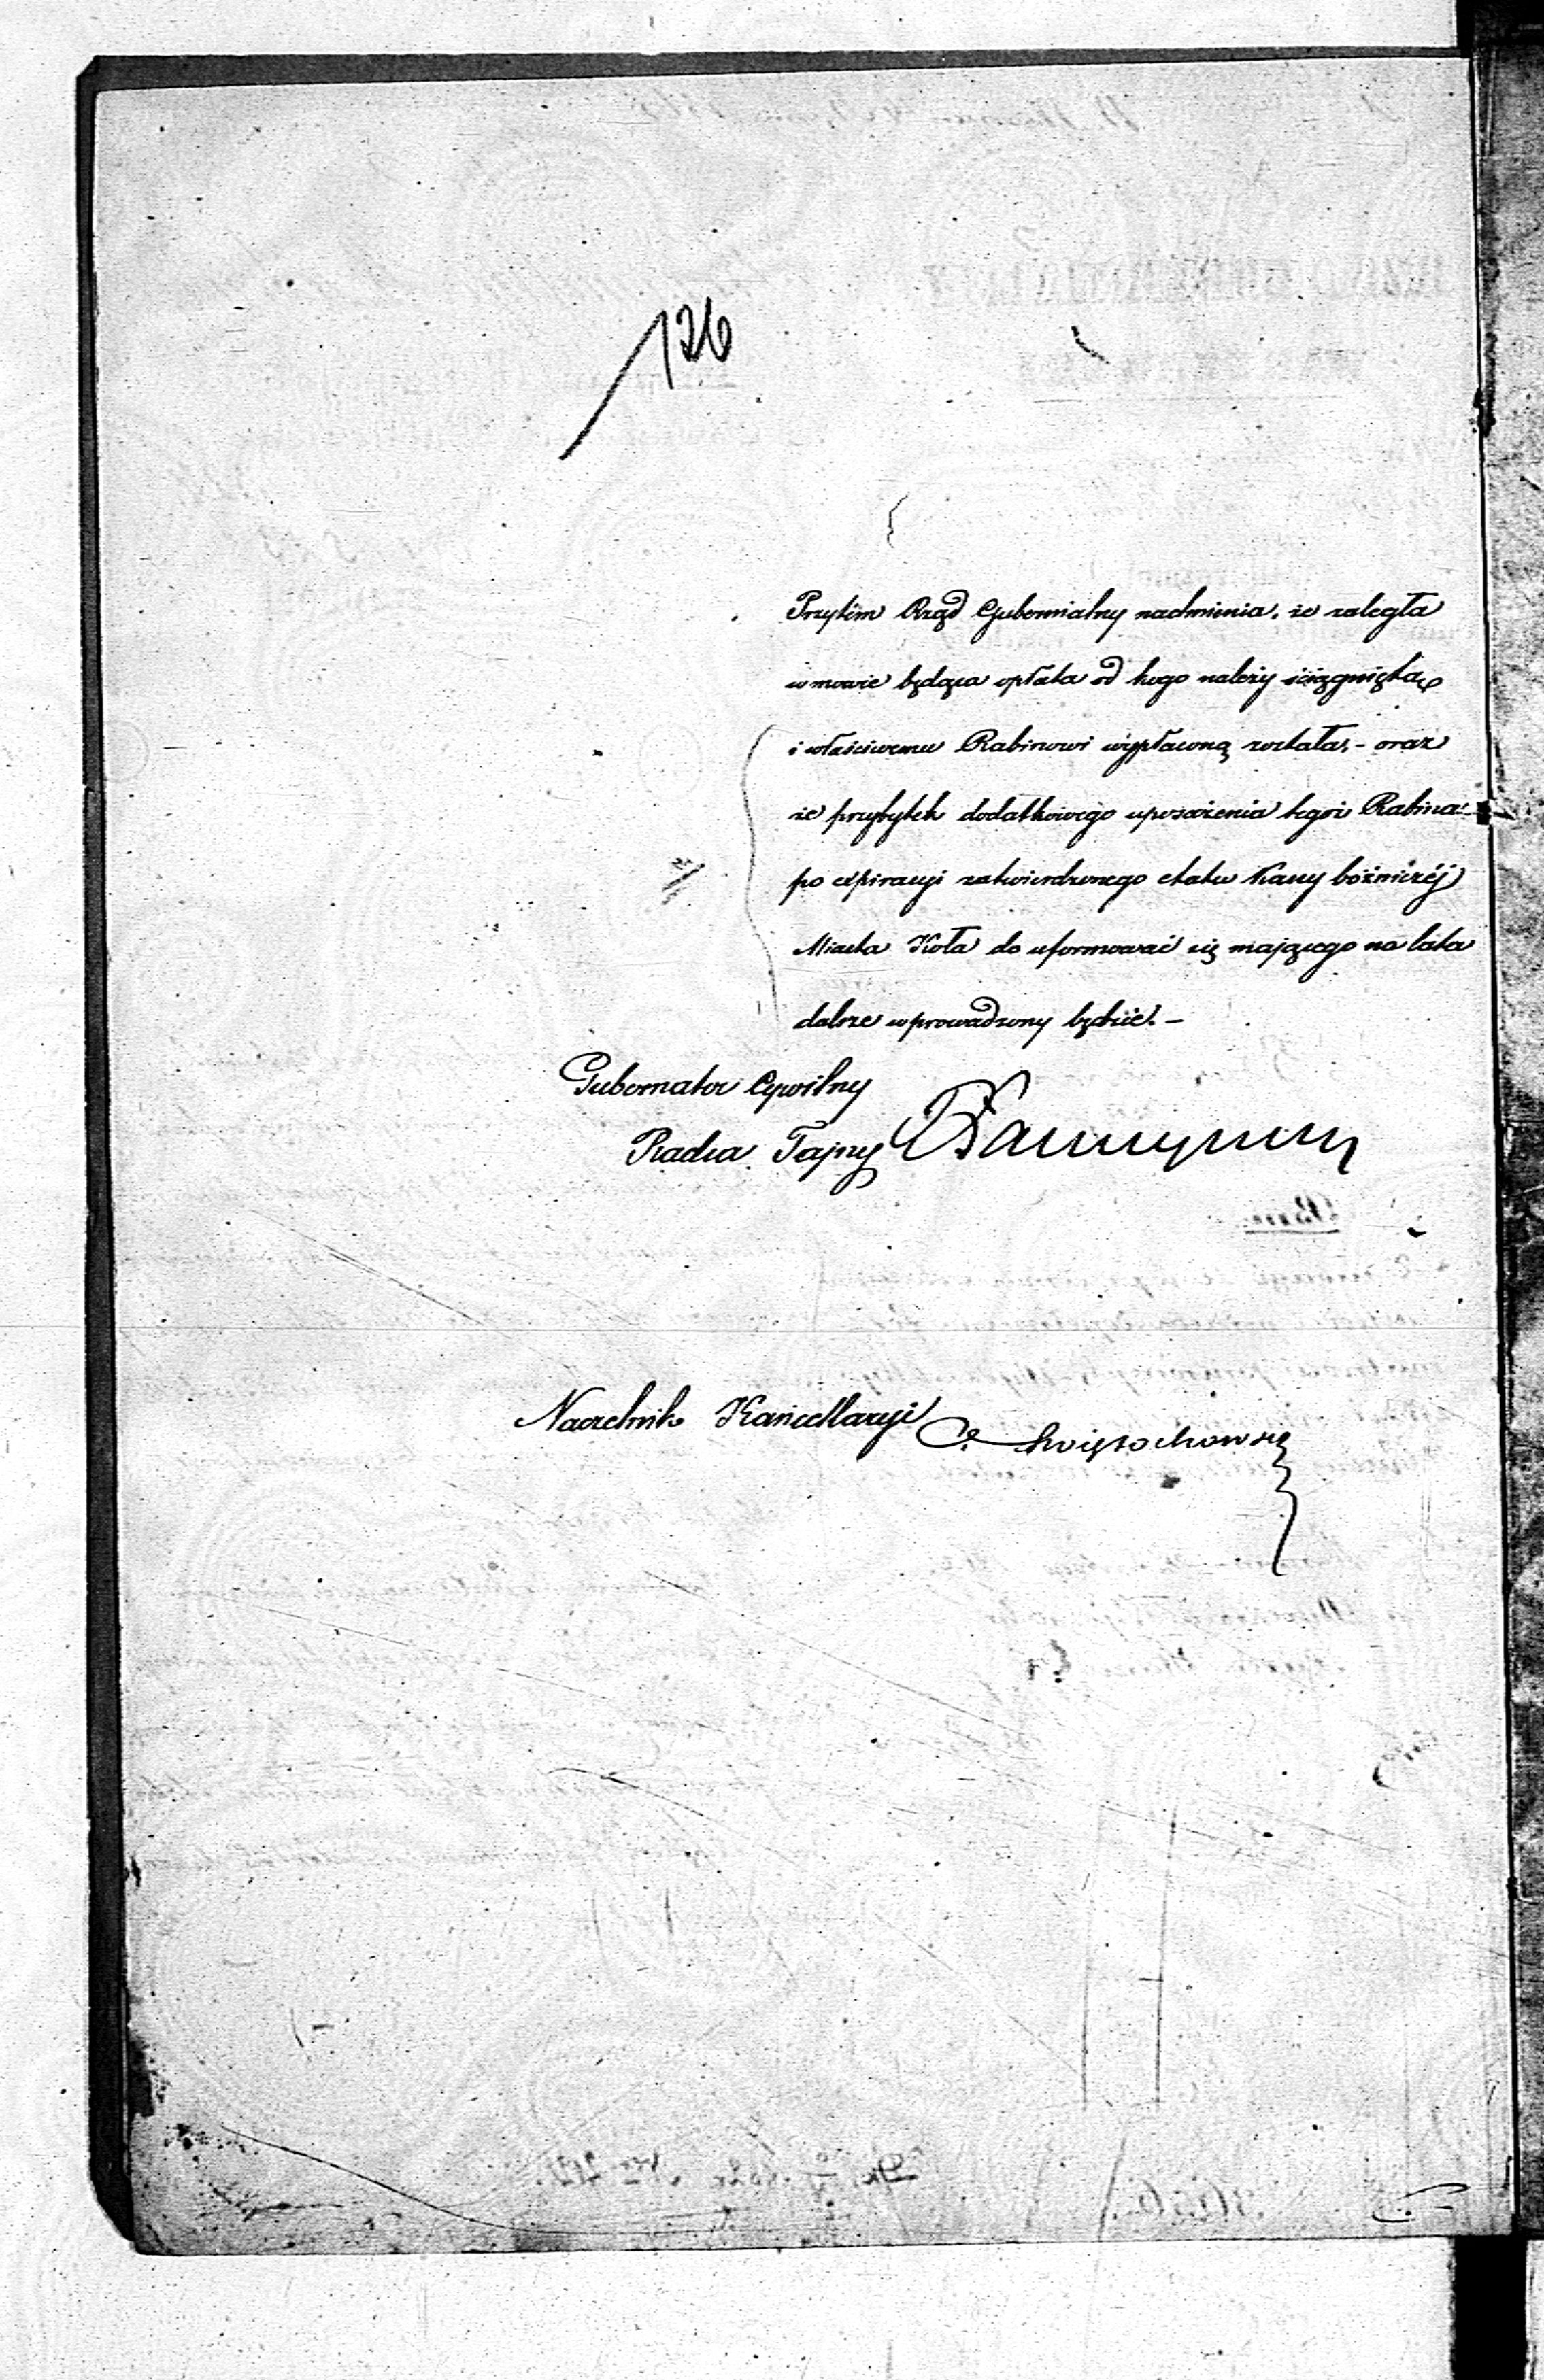 126
Przytém Rząd Gubernialny nadmienia, że zaległa
w mowie będąca opłata od kogo należy ściągniętą
i właściwemu Rabinowi wypłaconą została, - oraz
że przybytek dodatkowego uposażenia tegoż Rabina
po expiracyi zatwierdzonego etatu Kassy bóżniczéj
Miasta Koła do uformować się mającego na lata
dalsze wprowadzony będzie. -
Gubernator Cywilny
Radca Tajny
Naczelnik Kancellaryi